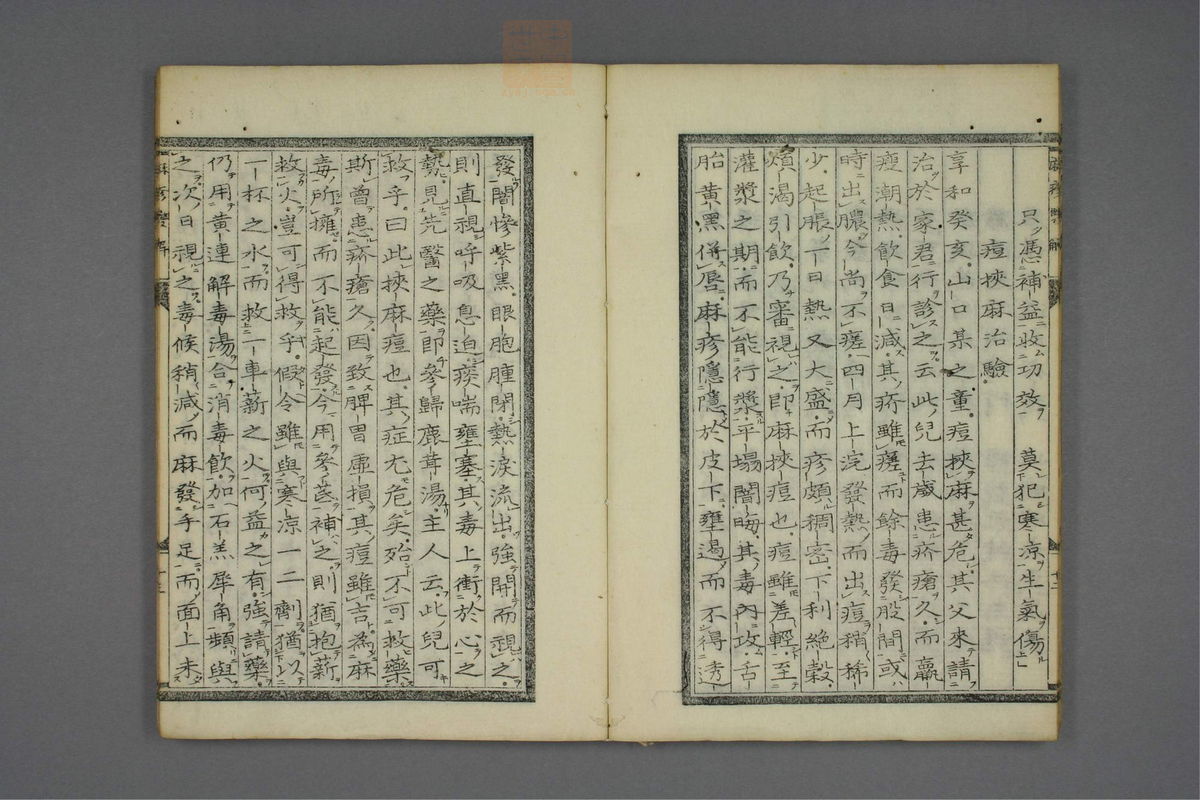 只憑補益收功效　莫犯寒凉生氣傷
痘挾麻治驗
享和癸亥山口某之童痘挾麻甚危其父來請
治於家君行診之云此兒去歲患疥瘡久而羸
瘦潮熱飲食日減其疥雖瘥而餘毒發股間或
時出膿今尚不瘥四月上浣發熱而出痘稍稀
少起脹一日熱又大盛而疹頗稠密下利絶穀
煩渴引飲乃審視之即麻挾痘也痘雖差輕至
灌漿之期而不能行漿平塌闇晦其毒内攻舌
胎黄黑併唇麻疹隱隱於皮下壅遏而不得透
發闇慘紫黑眼胞腫閉熱淚流出強開而視之
則直視呼吸息迫痰喘壅塞其毒上衝於心之
㔟見先醫之藥即參歸鹿茸湯主人云此兒可
救乎曰此挾麻痘也其症尤危矣殆不可救藥
斯曾患疥瘡久因致脾胃虛損其痘雖吉為麻
毒所擁而不能起發今用參芪補之則猶抱薪
救火豈可得救乎假令雖與寒凉一二劑猶以
一杯之水而救一車薪之火何益之有強請藥
仍用黄連解毒湯合消毒飲加石羔犀角頻與
之次日視之毒候稍減而麻發手足而面上未